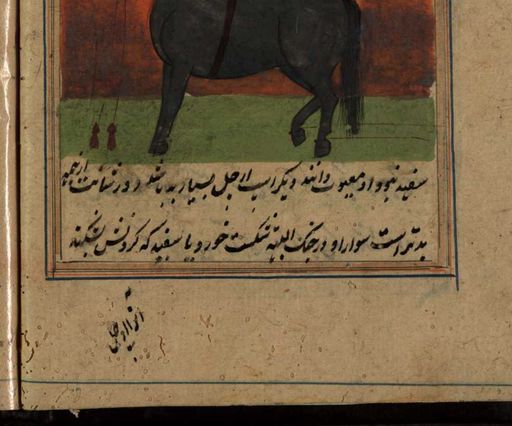 سفید نبود او معیوب دانند و دیگر اسب ارجل بسیار بد باشد و در نشانت از همه
بدتر است سوار او در جنک البته شکست خورد یا سفید که کردنش بشکند